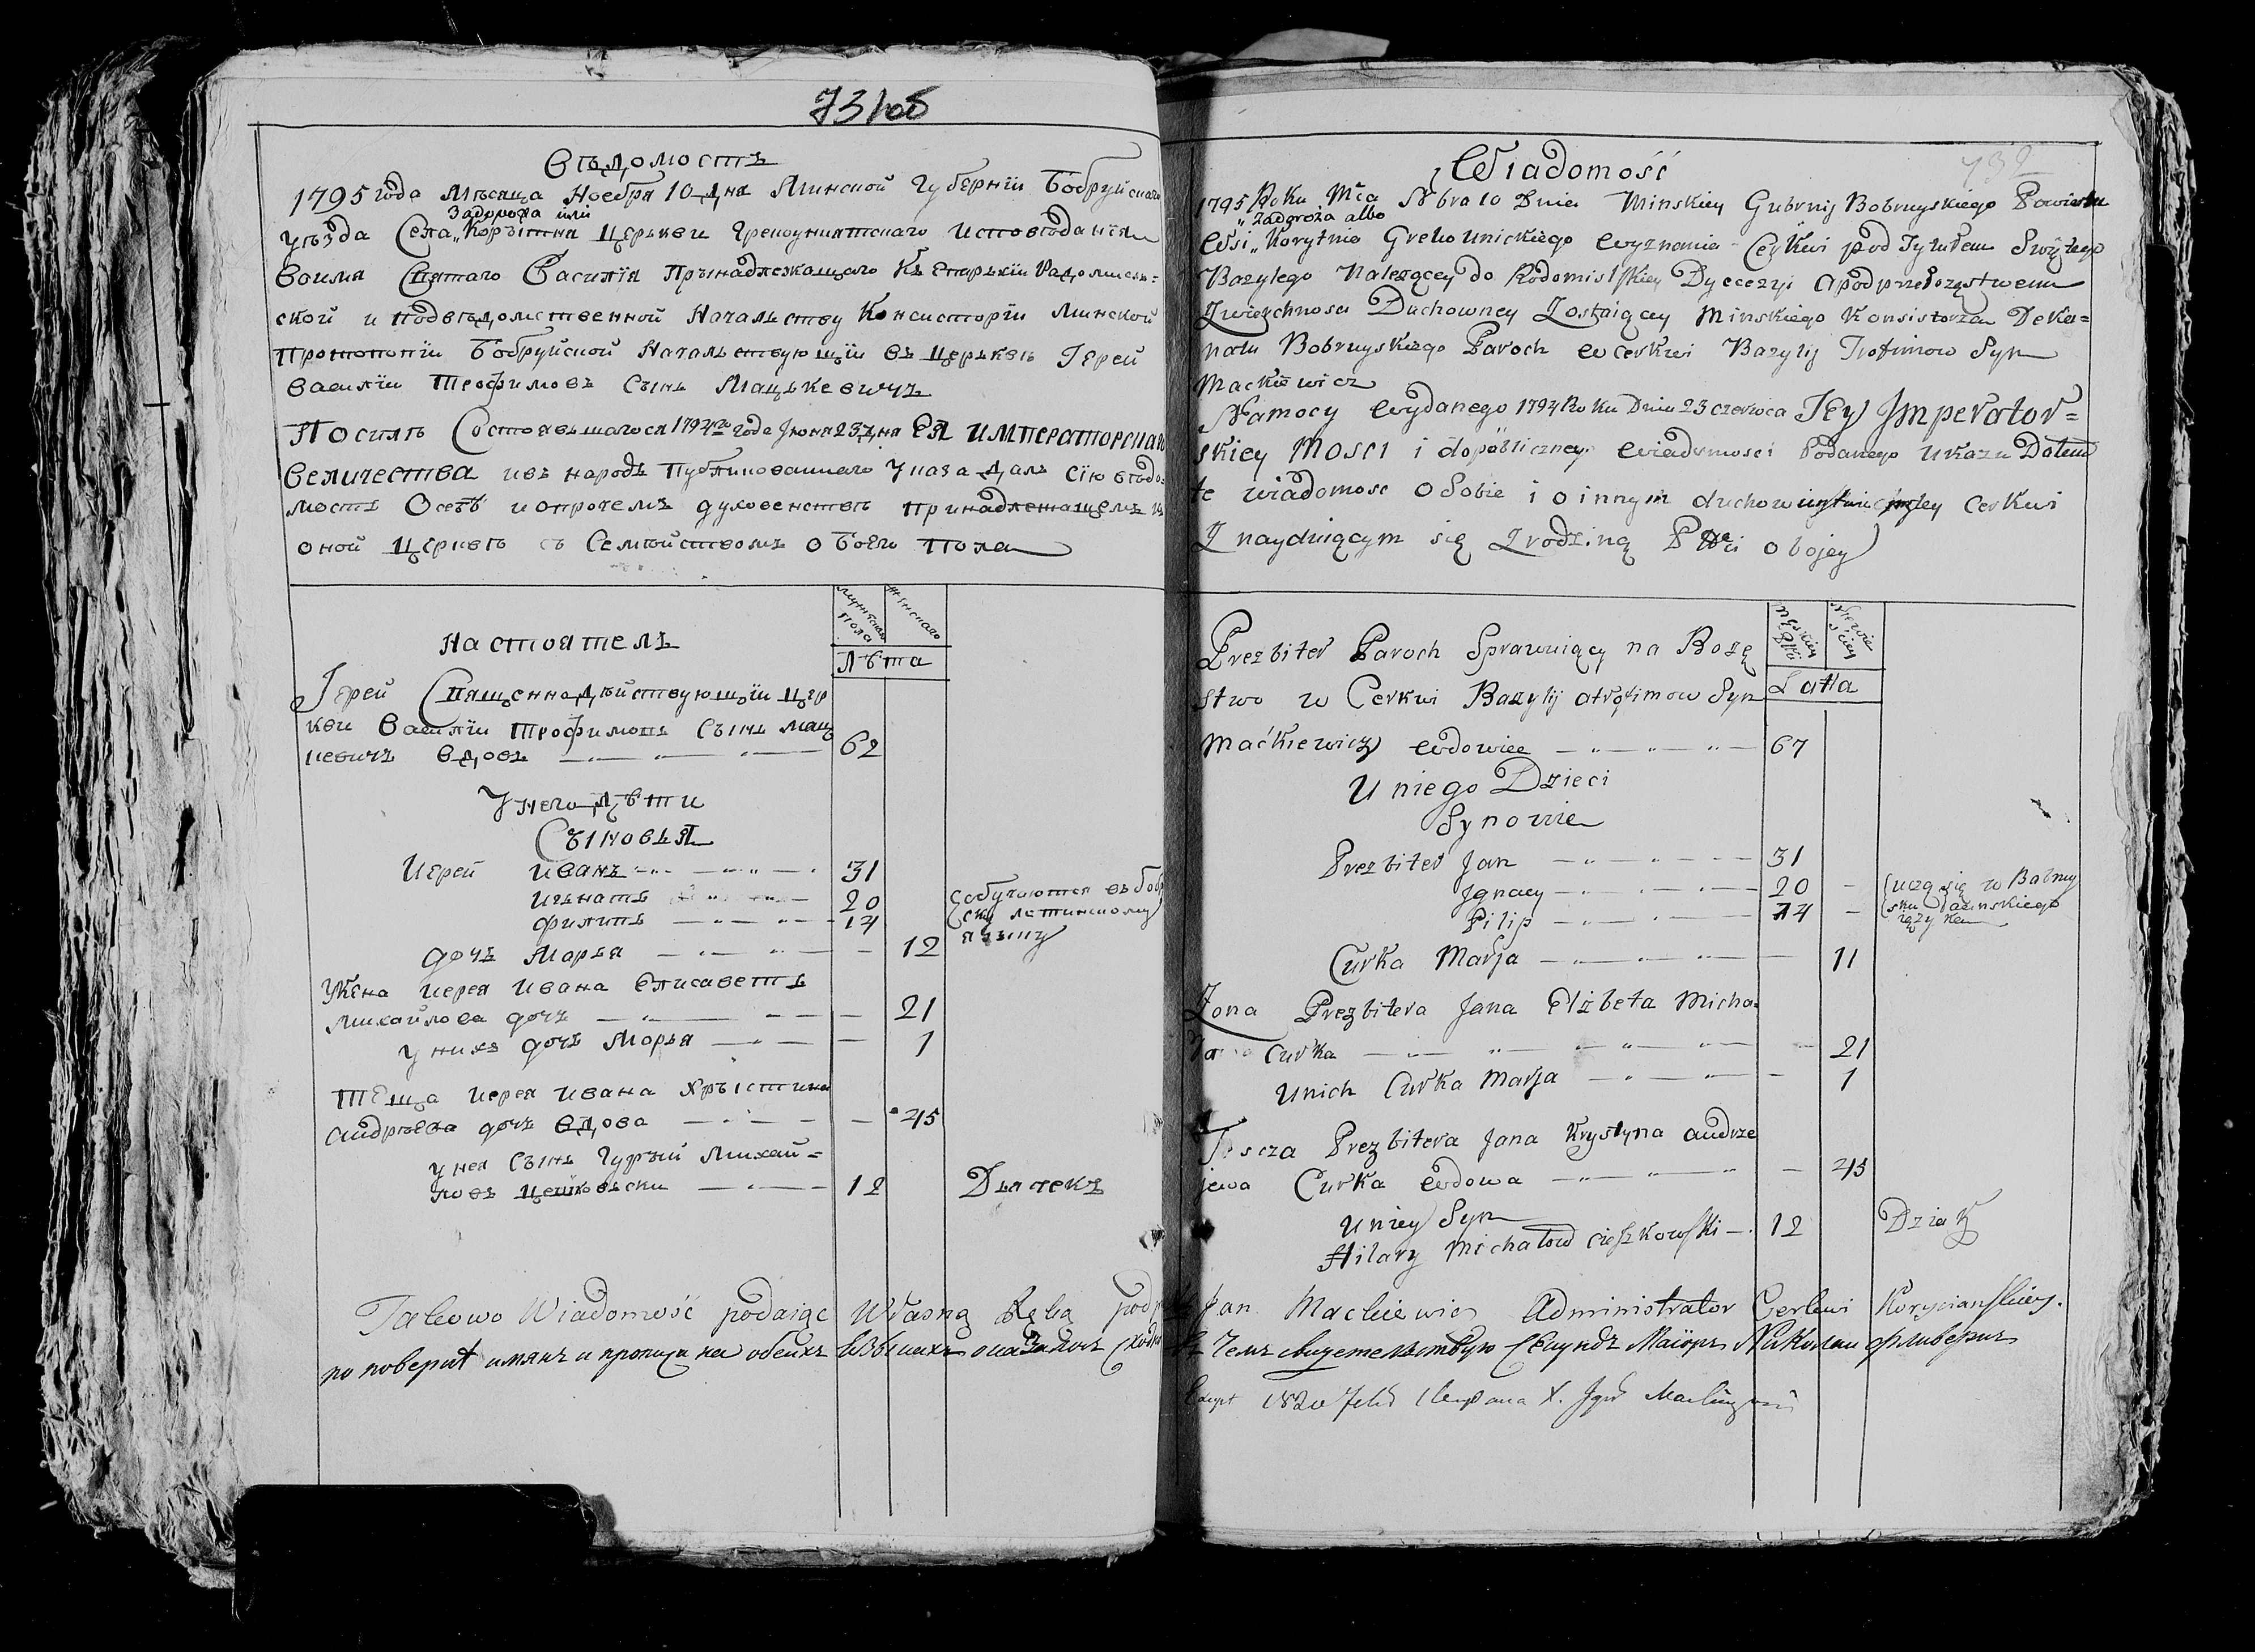 73 об
Вѣдомость
1795 года Мѣсяца Ноебря 10 дня Минской Губернїи Бобруйскаго
Задорожа или
уѣзда Села „Корытна Церькви Грекоуниятскаго исповѣданїя
воимя Святаго Василїя Принадлежащаго Къ Епархїи Радомисль=
ской и подвѣдомственной Начальству Консисторїи Минской
Протопопїи Бобруйской Начальствующїи въ Церьквѣ Їерей
Василїи Трофимовъ Сынъ Мацькевичъ
По силѣ Состоявшагося 1794го года Июня 23 дня ЕЯ ИМПЕРАТОРСКАГО
Величества ивъ народъ Публикованнаго Указа Далъ сїю вѣдо-
мость Осебѣ и опрочемъ духовенствѣ принадлежащемъ къ
оной Церквѣ съ Семейством обоего Пола
Мужескаго Пола
Женскаго
Настоятель
Лѣта
Їерей Священнадѣйствующїи Цер
кви Василїи Трофимовъ Сынъ Мац
кевичъ вдовъ 62
У Него Дѣти
Сыновья
Иерей Иванъ 31
Игнатъ 20
Филипъ 14
(обучаются въ Бобр
ску латинскому
языку
дочь Марья 12
Жена Иерея Ивана Елисаветъ
Михайлова дочь 21
у нихъ дочь Марья 1
Теща Иерея Ивана Хрыстина
Андрѣева дочь вдова 45
у нея Сынъ Гурый Михай=
ловъ Цешковски 12 Дьячекъ
Takowo Wiadomość podaiąc Własną Ręką
по поверке имянъ и пропиза на обеихъ
732
Wiadomość
1795 Roku Mca 9bra 10 Dnia Minskiey Gubrnij Bobruyskiego Powiatu
„Zadoroża albo
Wsi „Korytnia Grekounickiego wyznania Cerkwi pod Tytułem Swiętego
Bazylego Należącey do Rodomislskiey Dyecezyi a pod przełożęstwem
Zwierzchnosci Duchowney Zostaiącey Minskiego Konsistorza Deka=
natu Bobruyskiego Paroch w cerkwi Bazylij Trofimow Syn
Mackiewicz
Namocy wydanego 1794 Roku Dnia 23 czerwca JEy Jmperator=
skiey Mosci i dopubliczney wiadomosci Podanego ukazu Dałem
te wiadomosc o Sobie i o innym duchowinstwie przy tey Cerkwi
Znayduiącym się z rodziną Płci obojey
Męskiey Płci
Prezbiter Paroch Sprawuiący na Bożę
stwo w Cerkwi Bazylij atrofimow Syn
Latta
Maćkiewicz wdowiec 67
U niego Dzieci
Synowie
Prezbiter Jan 31
Jgnacy 20
Pilip 14
(uczą się w Bobruy
sku łacinskiego
ięzyka
Curka Marja 11
Zona Prezbitera Jana Elżbeta Micha-
Curka 21
Unich Curka Marja 1
Tescza Prezbitera Jana Krystyna andrze
jewa Curka wdowa 45
Uniey Syn
Hilary Michałow Cieszkowski 12 Dziak
Jan Mackiewicz Administrator Cerkwi Koryciańskiey.
Чемъ свидетельствую Секундъ Маїоръ Николаи